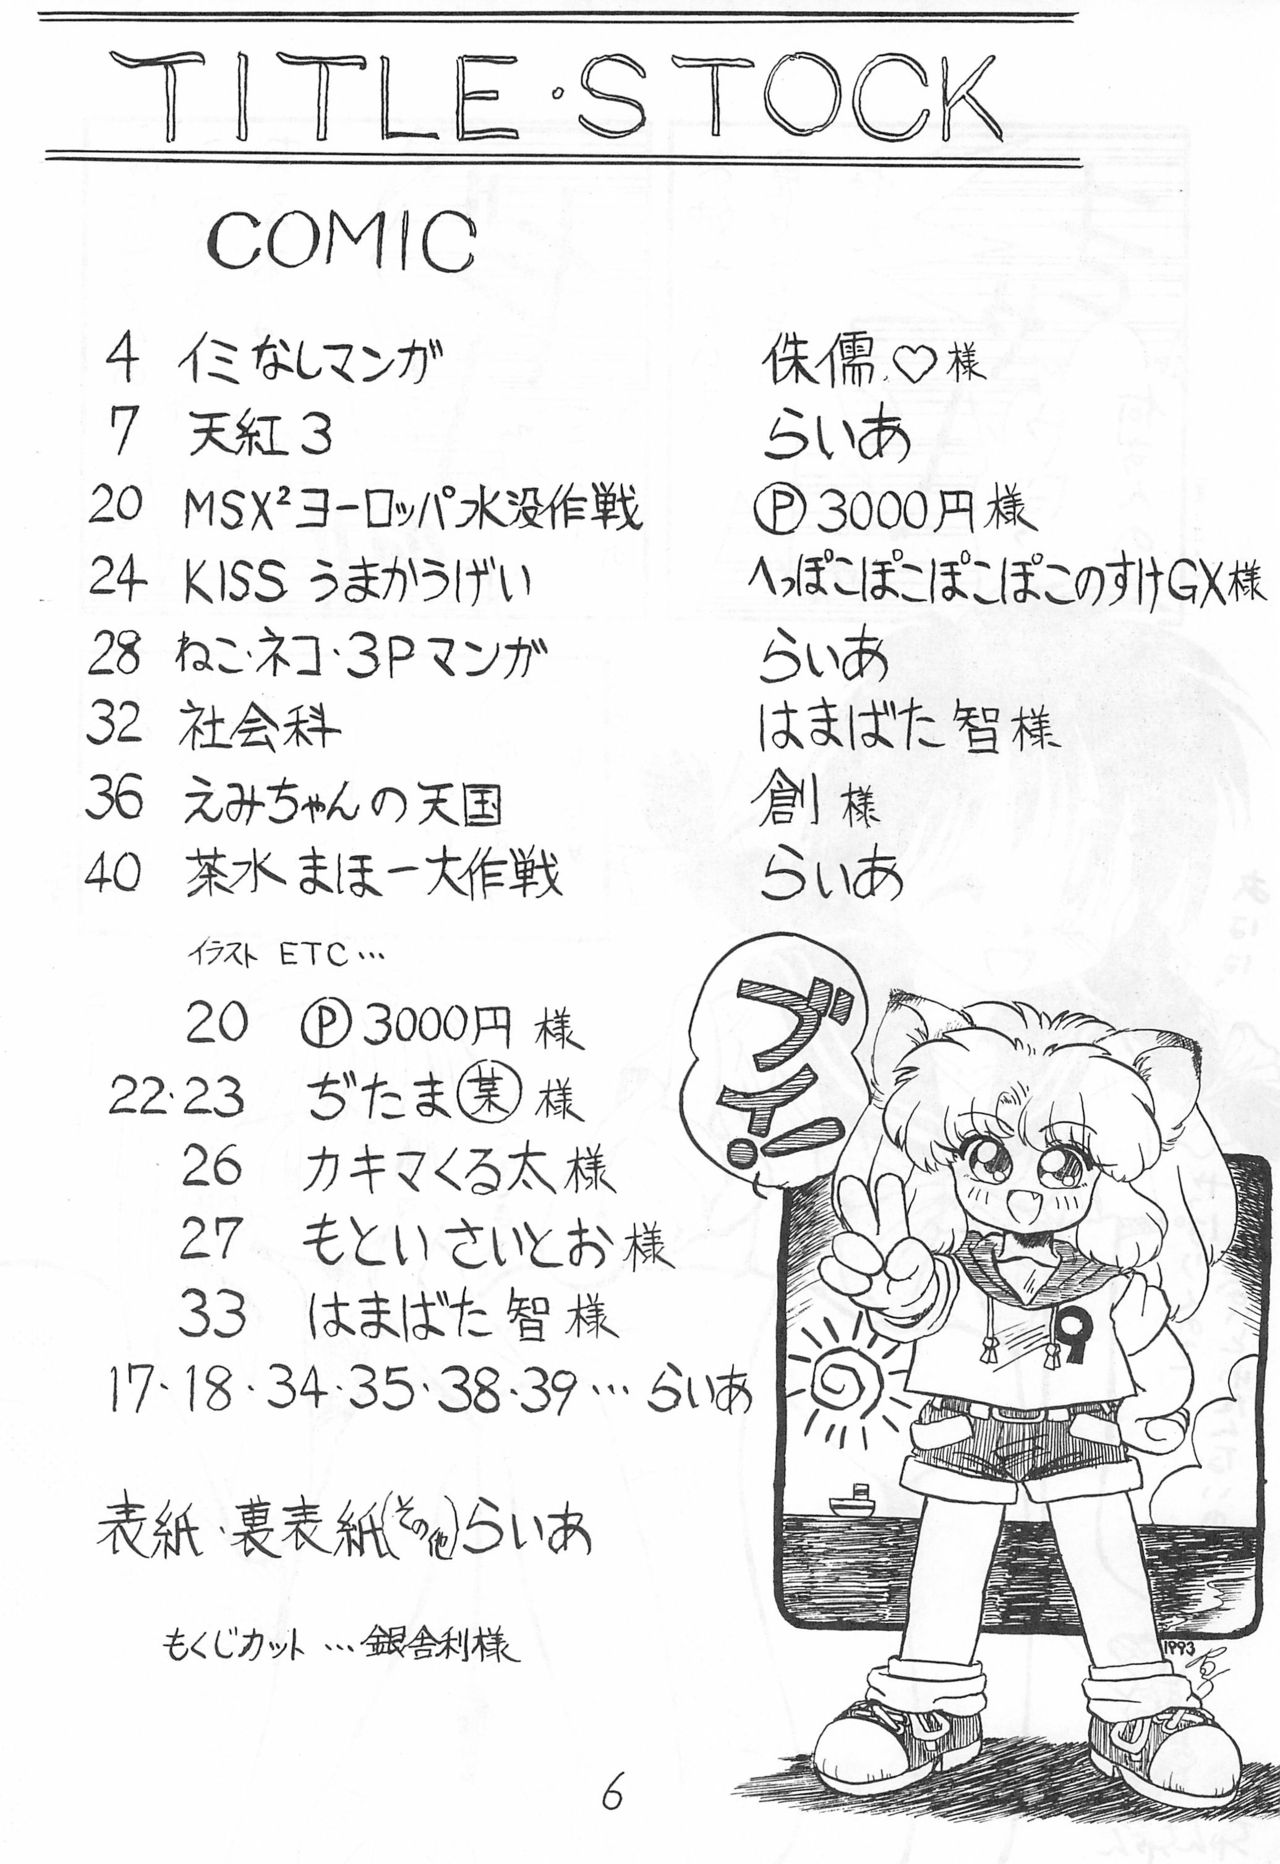 TITLE・STOCK
COMIC
4 イミなしマンガ 侏儒♡様
7 天紅3 らいあ
20 MSX²ヨーロッパ水没作戦 Ⓟ3000円様
24 KISS うまかうげい へっぽこぽこぽこぽこのすけGX様
28 ねこ・ネコ・3Pマンガ らいあ
32 社会科 はまばた智様
36 えみちゃんの天国 創様
40 茶水まほー大作戦 らいあ
イラスト ETC…
20 Ⓟ3000円様
22・23 ぢたま某様
26 カキマくる太様
27 もといさいとお様
33 はまばた智様
17・18・34・35・38・39… らいあ
表紙・裏表紙(その他)らいあ
もくじカット…銀舎利様
ブイ!
1993
6